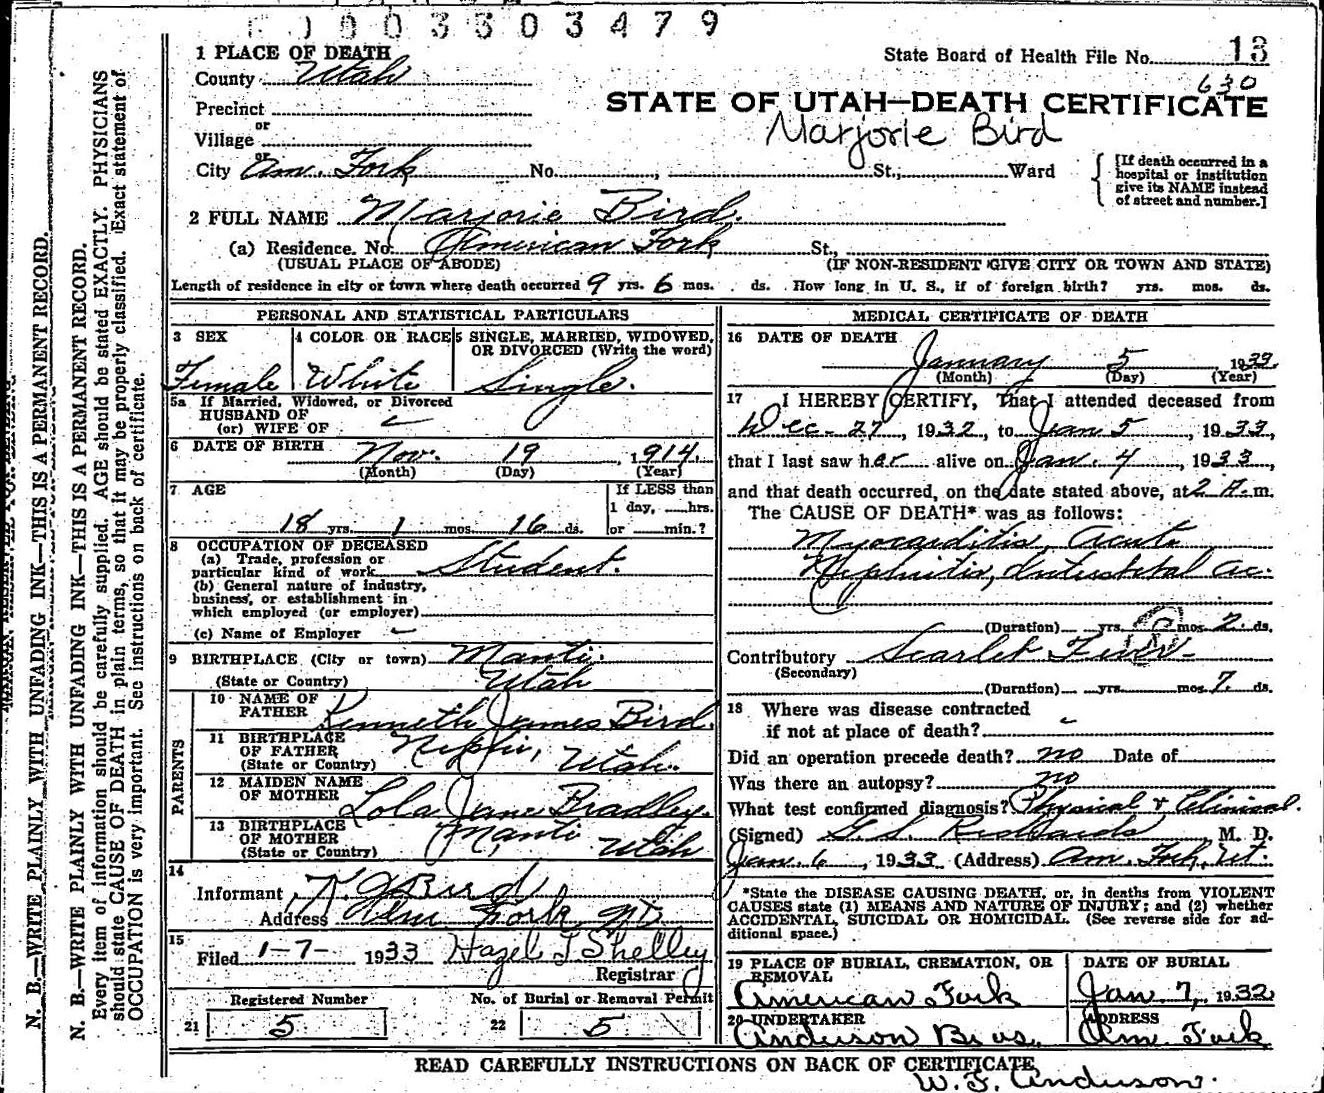 0 0 3 3 0 3 4 7 9
1 PLACE OF DEATH
State Board of Health File No. 13
County Utah
630
Precinct
STATE OF UTAH—DEATH CERTIFICATE
or
Marjorie Bird
Village
or
City Am. Fork No. , St., Ward
[If death occurred in a hospital or institution give its NAME instead of street and number.]
2 FULL NAME Marjorie Bird.
(a) Residence. No. American Fork St.,
(USUAL PLACE OF ABODE) (IF NON-RESIDENT GIVE CITY OR TOWN AND STATE)
Length of residence in city or town where death occurred 9 yrs. 6 mos. ds. How long in U. S., if of foreign birth? yrs. mos. ds.
PERSONAL AND STATISTICAL PARTICULARS
3 SEX 4 COLOR OR RACE 5 SINGLE, MARRIED, WIDOWED, OR DIVORCED (Write the word)
Female White Single.
5a If Married, Widowed, or Divorced
HUSBAND OF
(or) WIFE OF
6 DATE OF BIRTH Nov. 19, 1914.
(Month) (Day) (Year)
7 AGE If LESS than
1 day, hrs.
18 yrs. 1 mos. 16 ds. or min.?
8 OCCUPATION OF DECEASED
(a) Trade, profession or
particular kind of work Student.
(b) General nature of industry,
business, or establishment in
which employed (or employer)
(c) Name of Employer
9 BIRTHPLACE (City or town) Manti.
(State or Country) Utah
PARENTS
10 NAME OF FATHER Kenneth James Bird.
11 BIRTHPLACE OF FATHER (State or Country) Nephi, Utah.
12 MAIDEN NAME OF MOTHER Lola Jane Bradley.
13 BIRTHPLACE OF MOTHER (State or Country) Manti Utah
14
Informant K. J. Bird
Address Am Fork
15
Filed 1-7- 1933 Hazel J Shelley
Registrar
Registered Number No. of Burial or Removal Permit
21 5 22 5
MEDICAL CERTIFICATE OF DEATH
16 DATE OF DEATH
January 5 1933.
(Month) (Day) (Year)
17 I HEREBY CERTIFY, That I attended deceased from
Dec- 27, 1932, to Jan 5, 1933,
that I last saw her alive on Jan. 4, 1933,
and that death occurred, on the date stated above, at 2 A. m.
The CAUSE OF DEATH* was as follows:
Myocarditis, Acute
Nephritis, Interstital Ac.
(Duration) yrs. mos. 2 ds.
Contributory Scarlet Fever
(Secondary)
(Duration) yrs. mos. 7. ds.
18 Where was disease contracted
if not at place of death?
Did an operation precede death? no Date of
Was there an autopsy? no
What test confirmed diagnosis? Physical & Clinical.
(Signed) G. S. Richards, M. D.
Jan. 6, 1933 (Address) Am. Fork, Ut.
*State the DISEASE CAUSING DEATH, or, in deaths from VIOLENT
CAUSES state (1) MEANS AND NATURE OF INJURY; and (2) whether
ACCIDENTAL, SUICIDAL OR HOMICIDAL. (See reverse side for ad-
ditional space.)
19 PLACE OF BURIAL, CREMATION, OR REMOVAL DATE OF BURIAL
American Fork Jan 7, 1932
20 UNDERTAKER ADDRESS
Anderson Bros. Am. Fork
READ CAREFULLY INSTRUCTIONS ON BACK OF CERTIFICATE
W. F. Anderson.
N. B.—WRITE PLAINLY WITH UNFADING INK—THIS IS A PERMANENT RECORD.
N. B.—WRITE PLAINLY WITH UNFADING INK—THIS IS A PERMANENT RECORD.
Every item of information should be carefully supplied. AGE should be stated EXACTLY. PHYSICIANS
should state CAUSE OF DEATH in plain terms, so that it may be properly classified. Exact statement of
OCCUPATION is very important. See instructions on back of certificate.